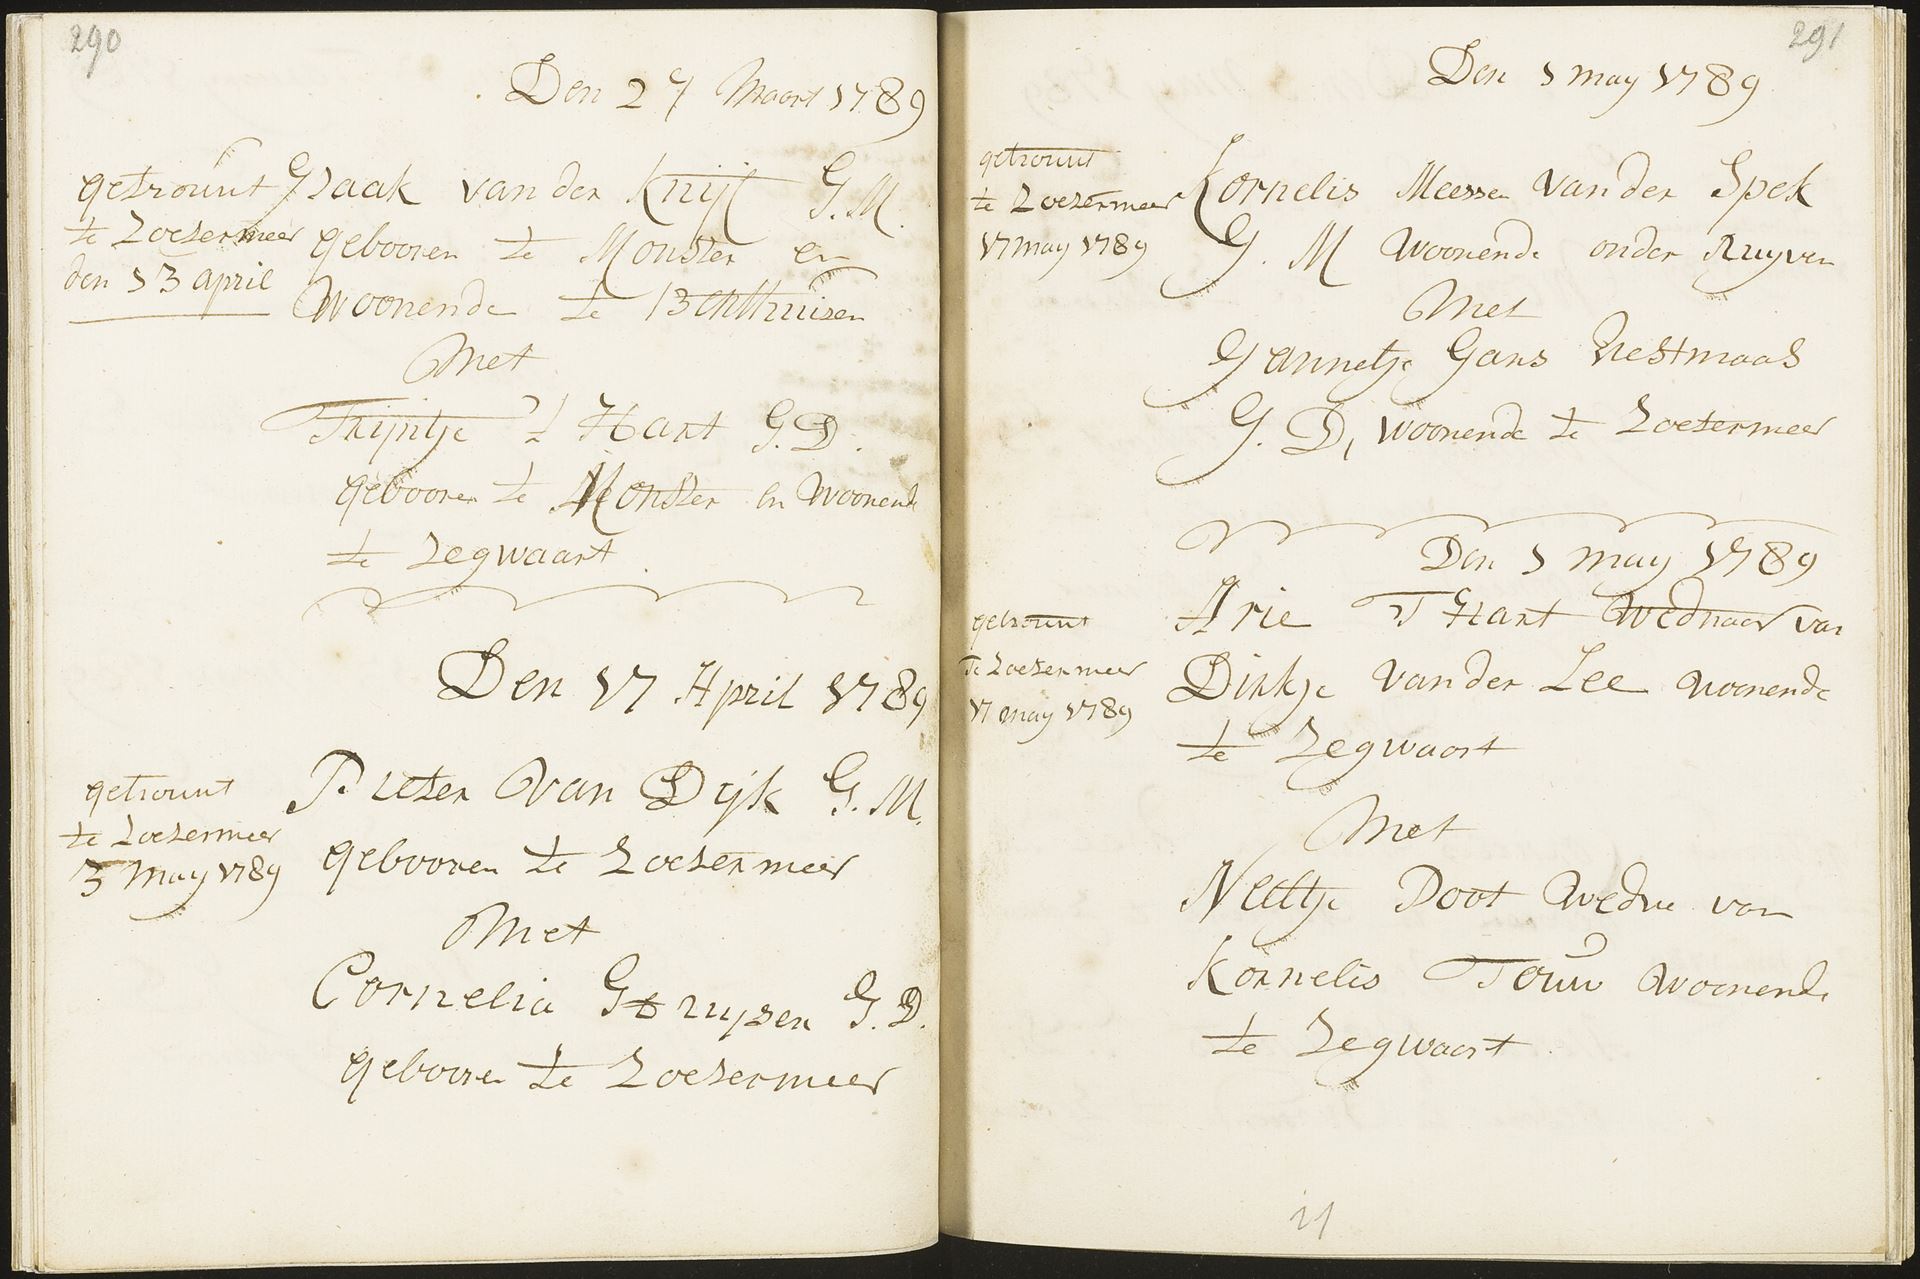 290
Den 27 Maart 1789
getrouwt
te Zoetermeer
den 13 april
Isaak van der Knijf G.M.
gebooren te Monster en
Woonende te
Met
Trijntje 't Hart G.D.
gebooren te Monster en Woonende
te Zegwaart
Den 17 April 1789
getrouwt
te Zoetermeer
3 May 1789
Pieter Van Dijk G.M.
gebooren te Zoetermeer
Met
Cornelia G.D.
gebooren te Zoetermeer
291
Den 1 may 1789
getrouwt
te Zoetermeer
17 may 1789
Kornelis Meesse van der Spek
G. M Woonende onder Ruyven
Met
Jannetje Gans Vestmaas
G. D, woonende te Zoetermeer
Den 1 may 1789
getrouwt
te Zoetermeer
17 may 1789
Arie T Hart Wednaar van
Dirkje van der Lee woonende
te Zegwaart
Met
Neeltje Doot Wedue van
Kornelis Touw woonende
te Zegwaart
21